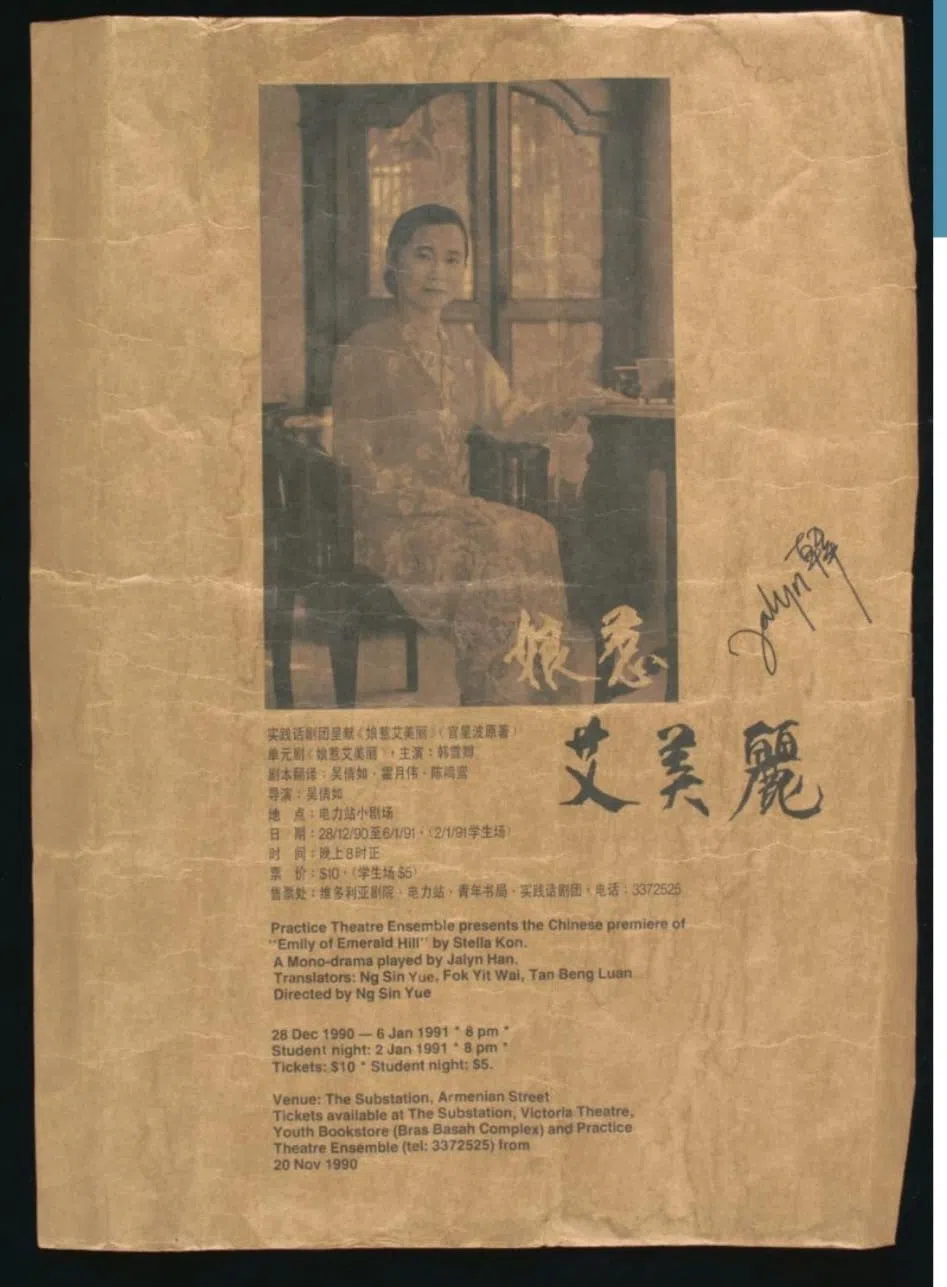 娘惹
艾美麗
Jalyn 韩
实践话剧团呈献《娘惹艾美丽》(官星波原著)
单元剧《娘惹艾美丽》,主演:韩雪卿
剧本翻译:吴倩如·霍月伟·陈鸣鸾
导演:吴倩如
地 点:电力站小剧场
日 期:28/12/90至6/1/91·(2/1/91学生场)
时 间:晚上8时正
票 价:$10·(学生场$5)
售票处:维多利亚剧院·电力站·青年书局·实践话剧团·电话:3372525
Practice Theatre Ensemble presents the Chinese premiere of
"Emily of Emerald Hill" by Stella Kon.
A Mono-drama played by Jalyn Han.
Translators: Ng Sin Yue, Fok Yit Wai, Tan Beng Luan
Directed by Ng Sin Yue
28 Dec 1990 — 6 Jan 1991 * 8 pm *
Student night: 2 Jan 1991 * 8 pm *
Tickets: $10 * Student night: $5.
Venue: The Substation, Armenian Street
Tickets available at The Substation, Victoria Theatre,
Youth Bookstore (Bras Basah Complex) and Practice
Theatre Ensemble (tel: 3372525) from
20 Nov 1990